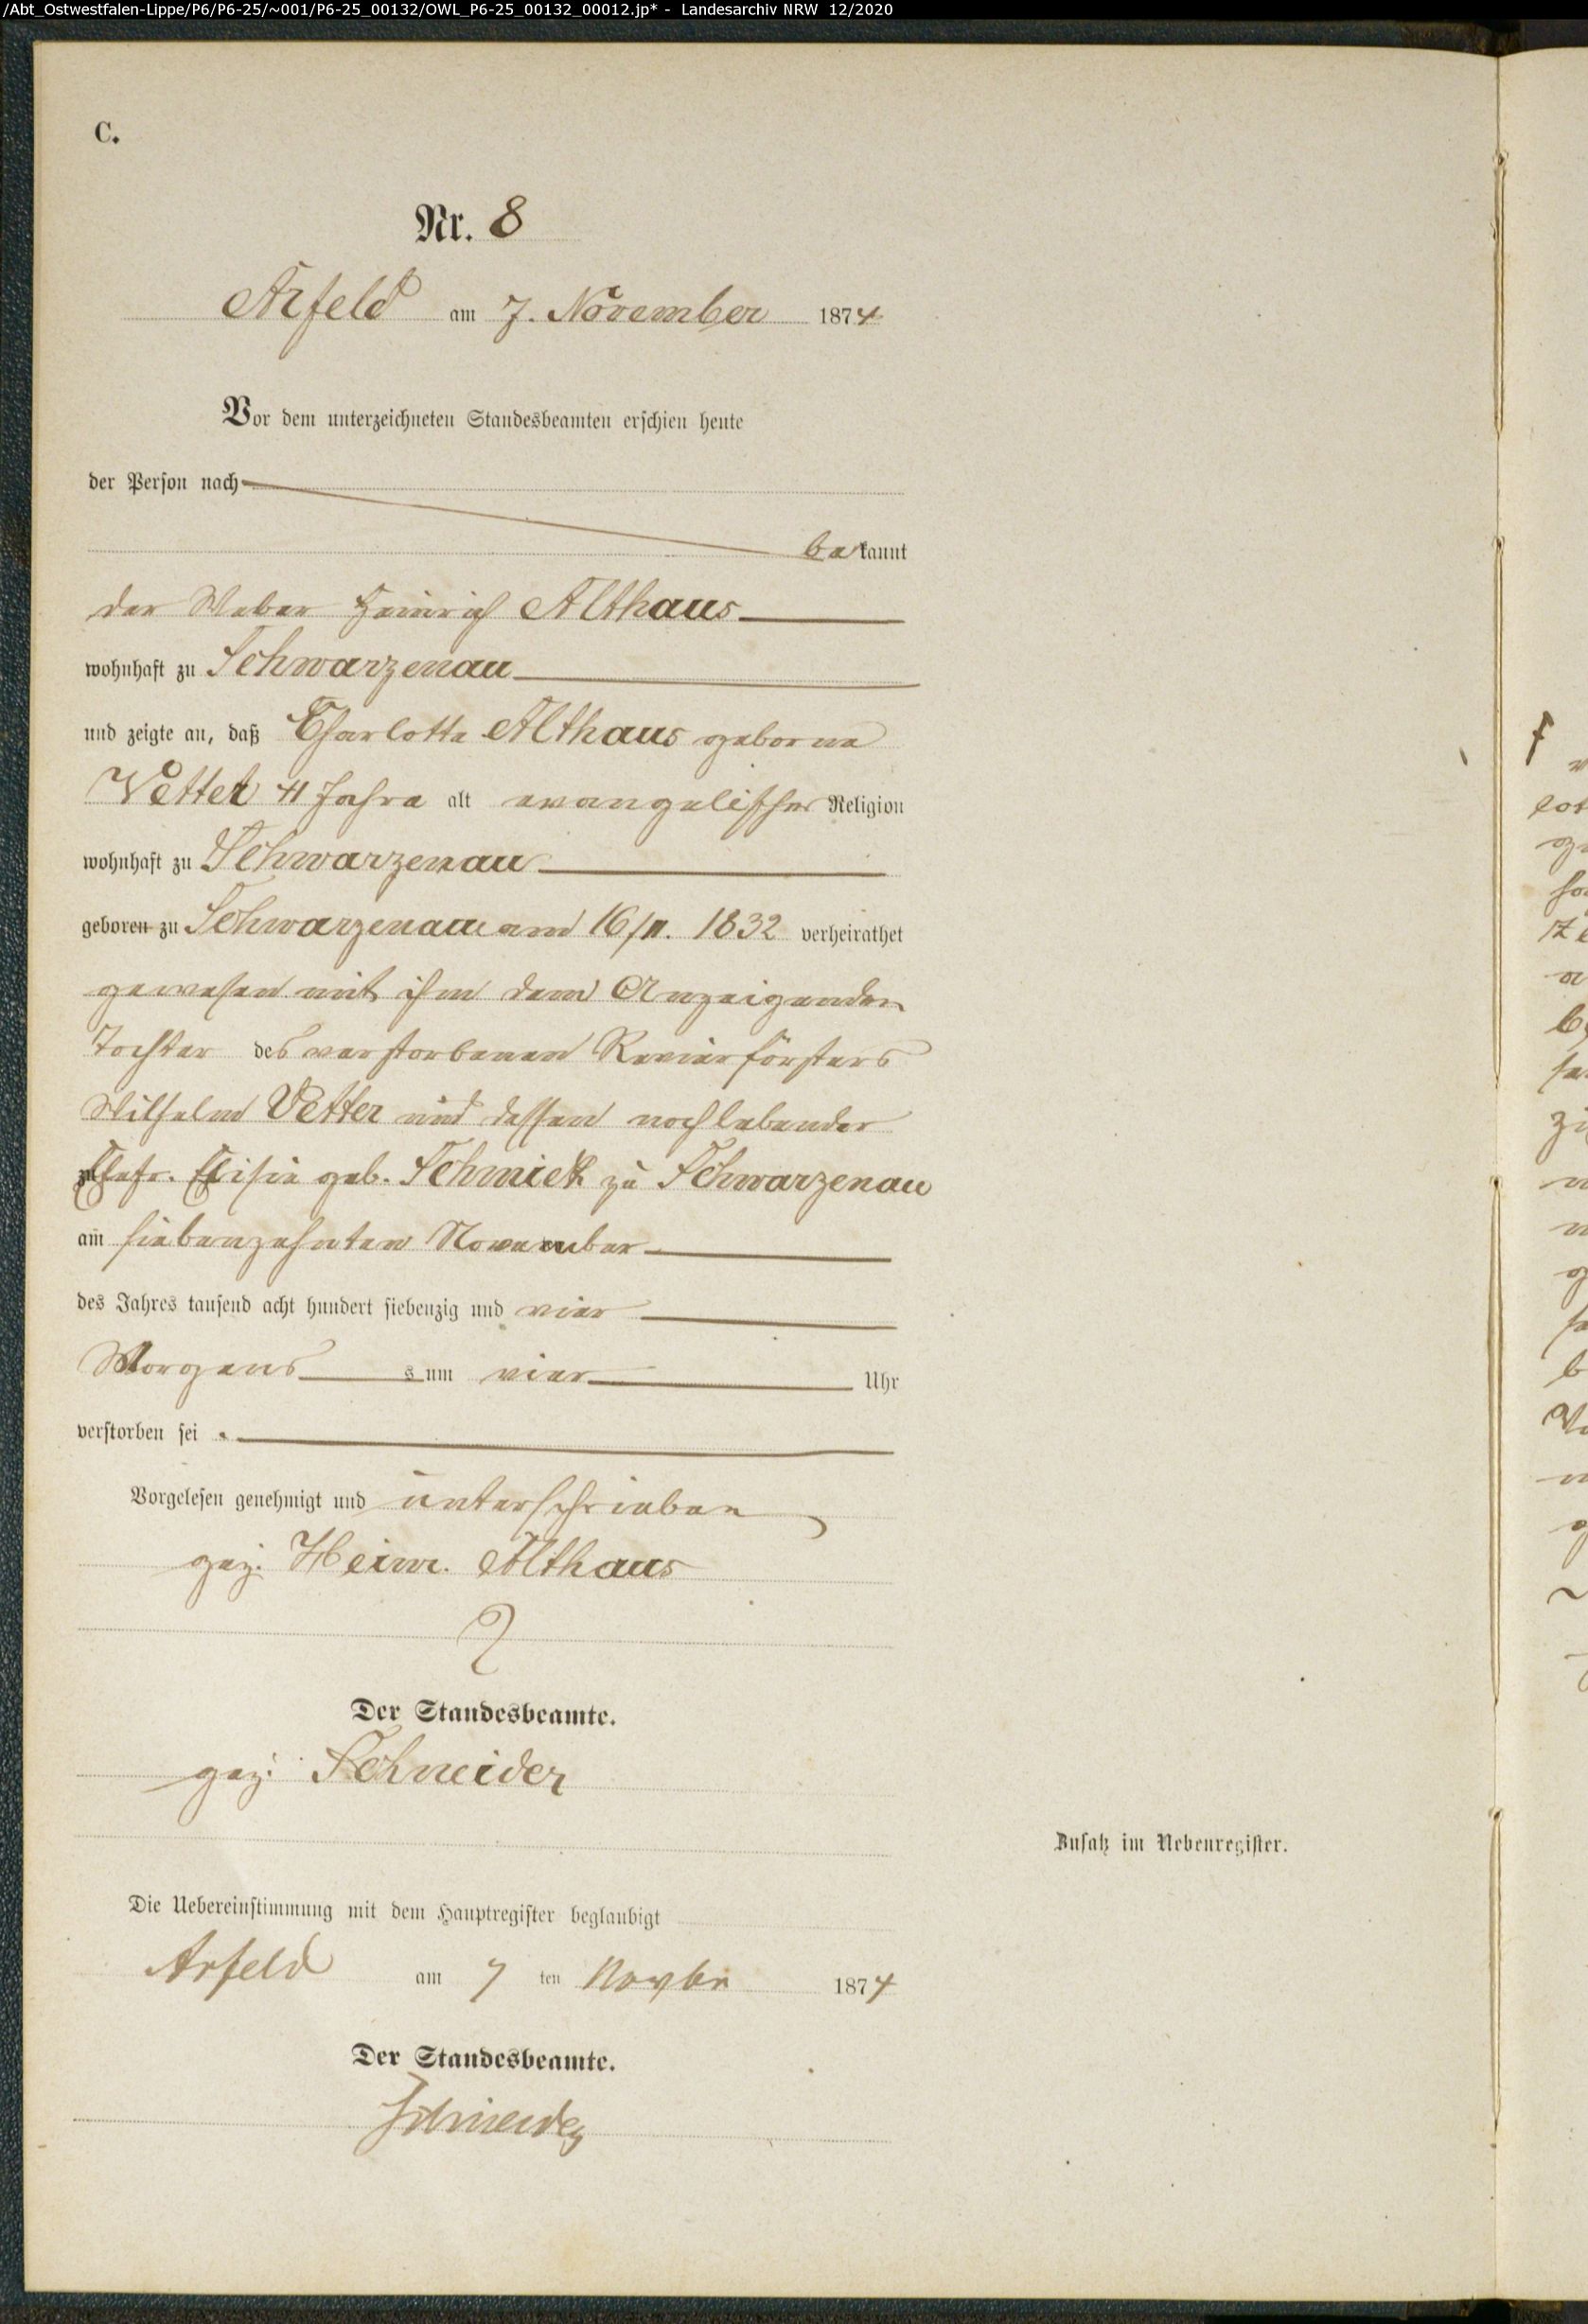 /Abt_Ostwestfalen-Lippe/P6/P6-25/~001/P6-25_00132/OWL_P6-25_00132_00012.jp* - Landesarchiv NRW 12/2020
C.
Nr. 8
Arfeld am 7. November 1874
Vor dem unterzeichneten Standesbeamten erschien heute
der Person nach
bekannt
der Weber Heinrich Althaus
wohnhaft zu Schwarzenau
und zeigte an, daß Charlotte Althaus geborne
Vetter 41 Jahre alt evangelischer Religion
wohnhaft zu Schwarzenau
geboren zu Schwarzenau am 16/11. 1832 verheirathet
gewesen mit ihm dem Anzeigenden
Tochter des verstorbenen Revierförsters
Wilhelm Vetter und dessen noch lebender
Ehefr. geb. Schmick zu Schwarzenau
am siebenzehnten November
des Jahres tausend acht hundert siebenzig und vier
Morgens s um vier Uhr
verstorben sei .
Vorgelesen genehmigt und unterschrieben
gez. Heinr. Althaus
Der Standesbeamte.
gez. Schneider
Zusatz im Nebenregister.
Die Uebereinstimmung mit dem Hauptregister beglaubigt
Arfeld am 7 ten Novbr 1874
Der Standesbeamte.
Schneider